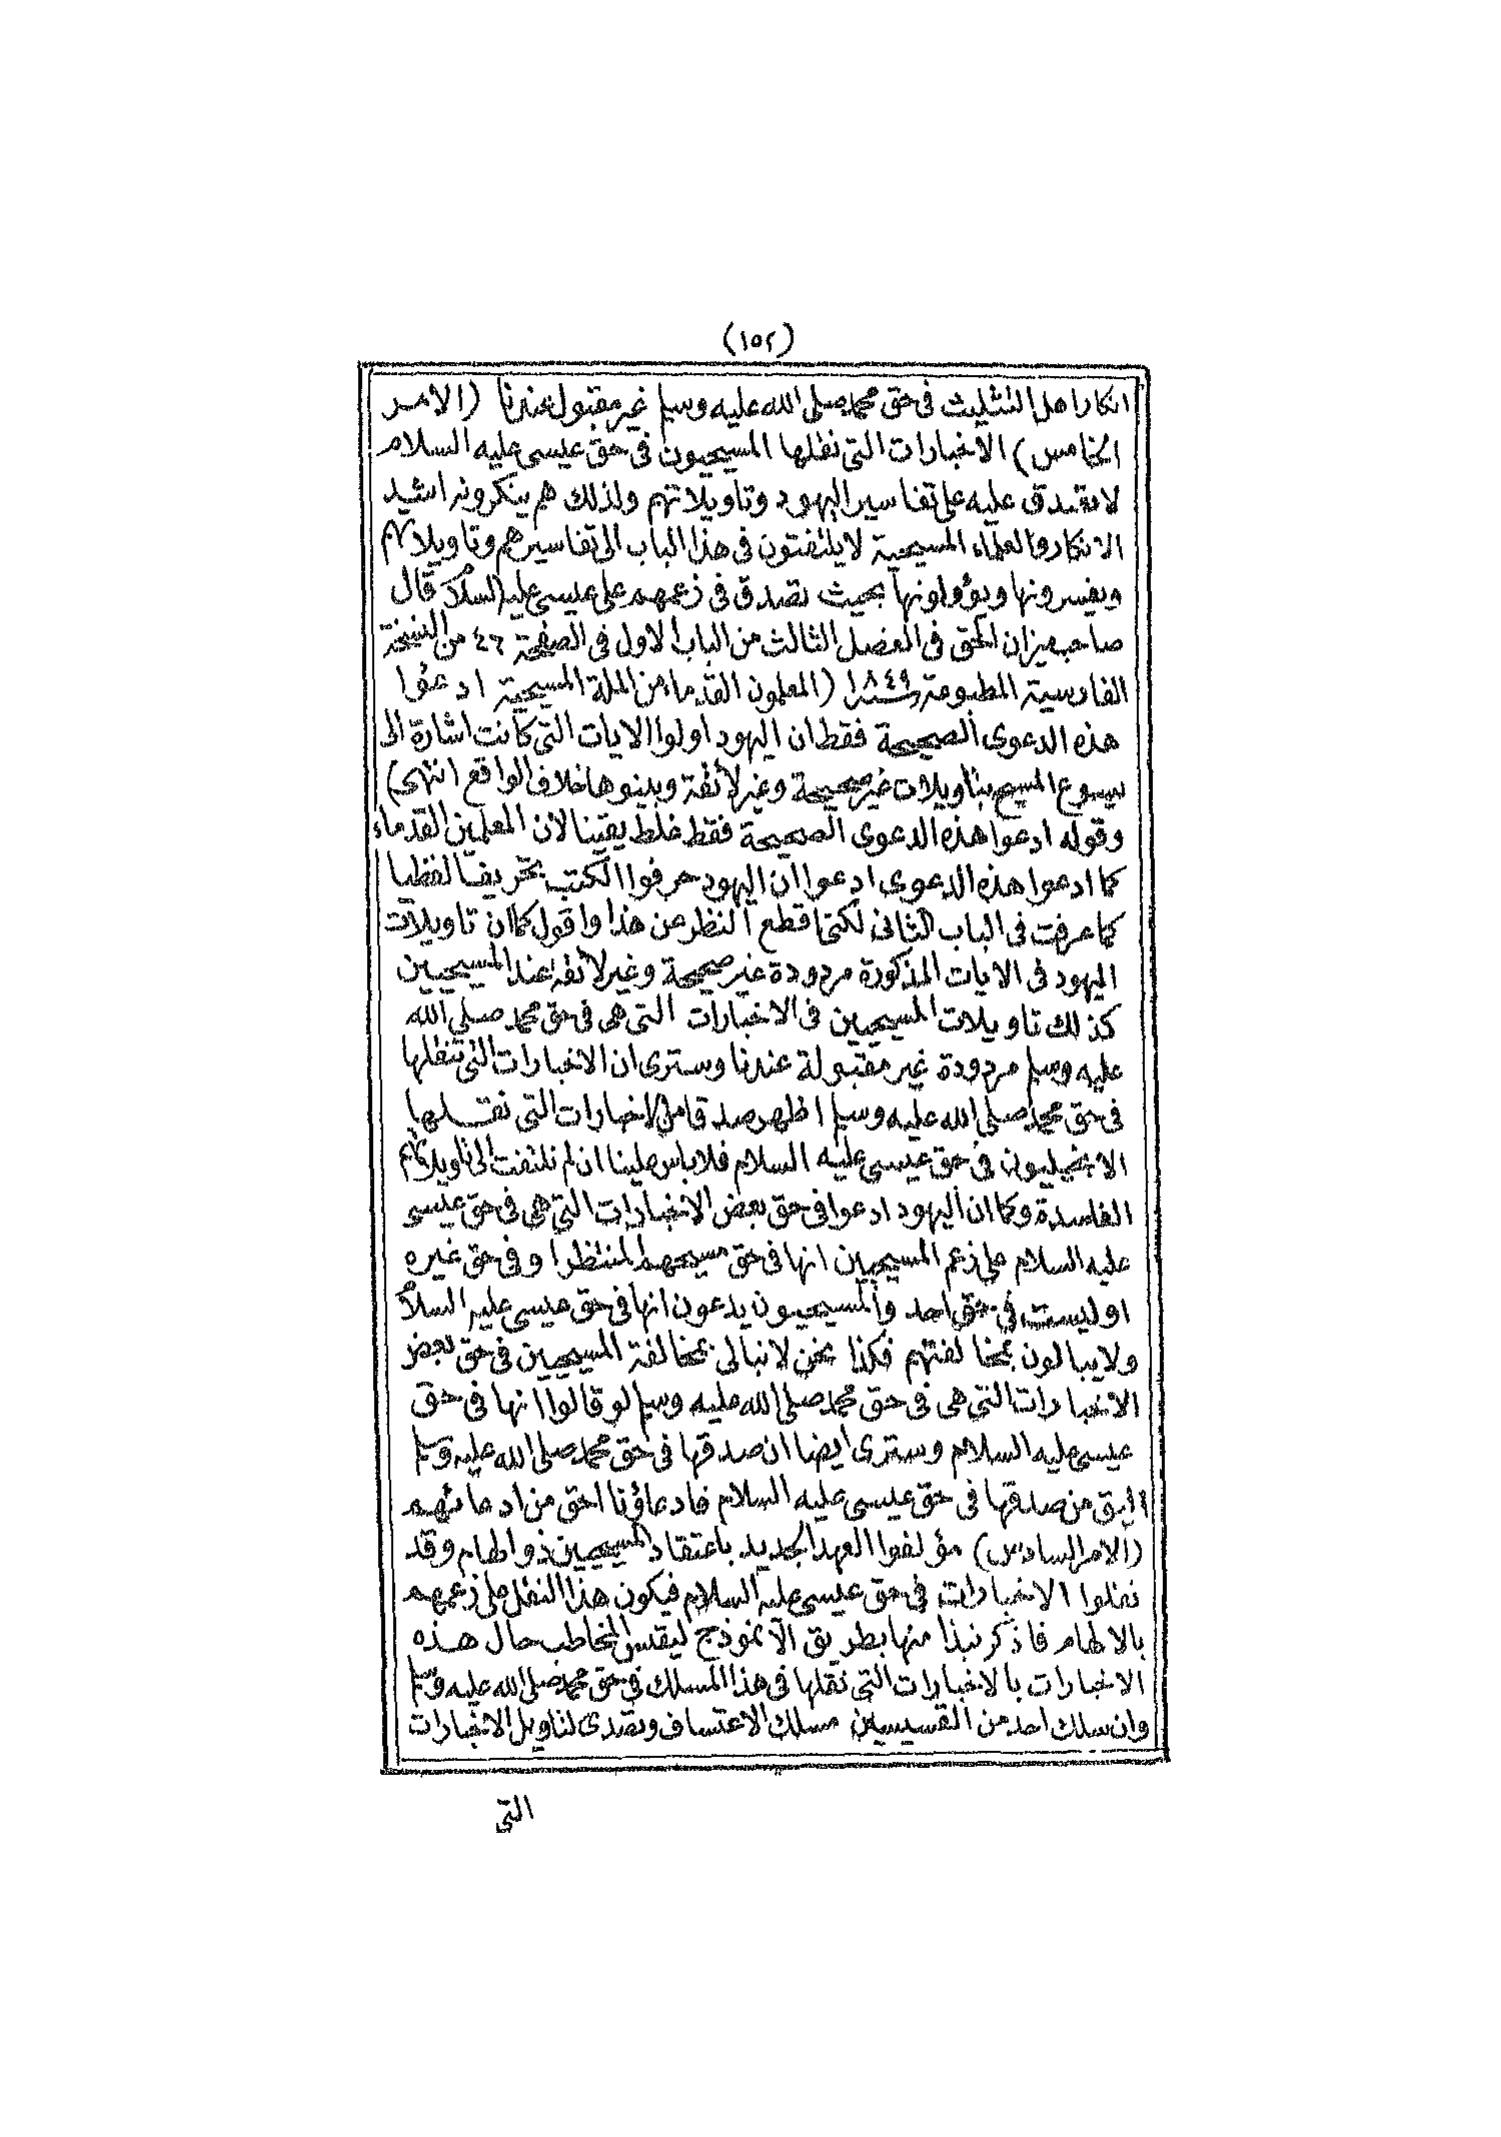 (١٥٢)
انكار اهل التثليث فى حق محمد صلى الله عليه وسلم غير مقبول عندنا (الامر
الخامس) الاخبارات التى نقلها المسيحيون فى حق عيسى عليه السلام
لا تصدق عليه على تفاسير اليهود وتاويلاتهم ولذلك هم ينكرونه اشد
الانكار والعلماء المسيحية لا يلتفتون فى هذا الباب الى تفاسيرهم وتاويلاتهم
ويفسرونها ويؤولونها بحيث تصدق فى زعمهم على عيسى عليه السلام قال
صاحب ميزان الحق فى الفصل الثالث من الباب الاول فى الصفحة ٤٦ من النسخة
الفارسية المطبوعة سنة ١٨٤٩ (المعلمون القدماء من الملة المسيحية ادعوا
هذه الدعوى الصحيحة فقط ان اليهود اولوا الايات التى كانت اشارة الى
يسوع المسيح بتاويلات غير صحيحة وغير لائقة وبينوها خلاف الواقع انتهى)
وقوله ادعوا هذه الدعوى الصحيحة فقط غلط يقينا لان المعلمين القدماء
كما ادعوا هذه الدعوى ادعوا ان اليهود حرفوا الكتب تحريفا لفظيا
كما عرفت فى الباب الثانى لكنى اقطع النظر عن هذا واقول كما ان تاويلات
اليهود فى الايات المذكورة مردودة غير صحيحة وغير لائقة عند المسيحيين
كذلك تاويلات المسيحيين فى الاخبارات التى هى فى حق محمد صلى الله
عليه وسلم مردودة غير مقبولة عندنا وسترى ان الاخبارات التى ننقلها
فى حق محمد صلى الله عليه وسلم اظهر صدقا من الاخبارات التى نقلها
الانجيليون فى حق عيسى عليه السلام فلا باس علينا ان لم نلتفت الى تاويلاتهم
الفاسدة وكما ان اليهود ادعوا فى حق بعض الاخبارات التى هى فى حق عيسى
عليه السلام على زعم المسيحيين انها فى حق مسيحهم المنتظر او فى حق غيره
او ليست فى حق احد والمسيحيون يدعون انها فى حق عيسى عليه السلام
ولا يبالون بمخالفتهم فكذا نحن لا نبالى بمخالفة المسيحيين فى حق بعض
الاخبارات التى هى فى حق محمد صلى الله عليه وسلم لو قالوا انها فى حق
عيسى عليه السلام وسترى ايضا ان صدقها فى حق محمد صلى الله عليه وسلم
اليق من صدقها فى حق عيسى عليه السلام فادعاؤنا احق من ادعائهم
(الامر السادس) مؤلفوا العهد الجديد باعتقاد المسيحيين ذوا الهام وقد
نقلوا الاخبارات فى حق عيسى عليه السلام فيكون هذا النقل على زعمهم
بالالهام فاذكر نبذا منها بطريق الانموذج ليقيس المخاطب حال هذه
الاخبارات بالاخبارات التى نقلها فى هذا المسلك فى حق محمد صلى الله عليه وسلم
وان سلك احد من القسيسين مسلك الاعتساف وتصدى لتاويل الاخبارات
التى